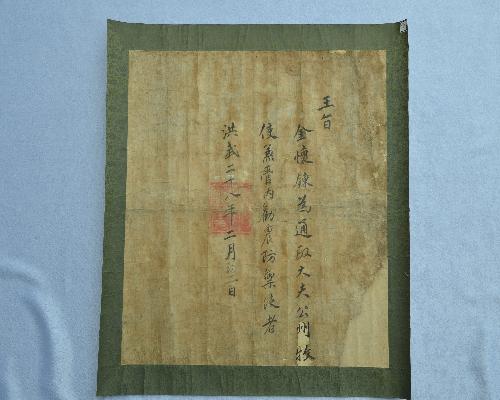 王旨
金懷鍊爲通政大夫公州牧
使兼管內勸農防禦使者
洪武二十八年二月初二日